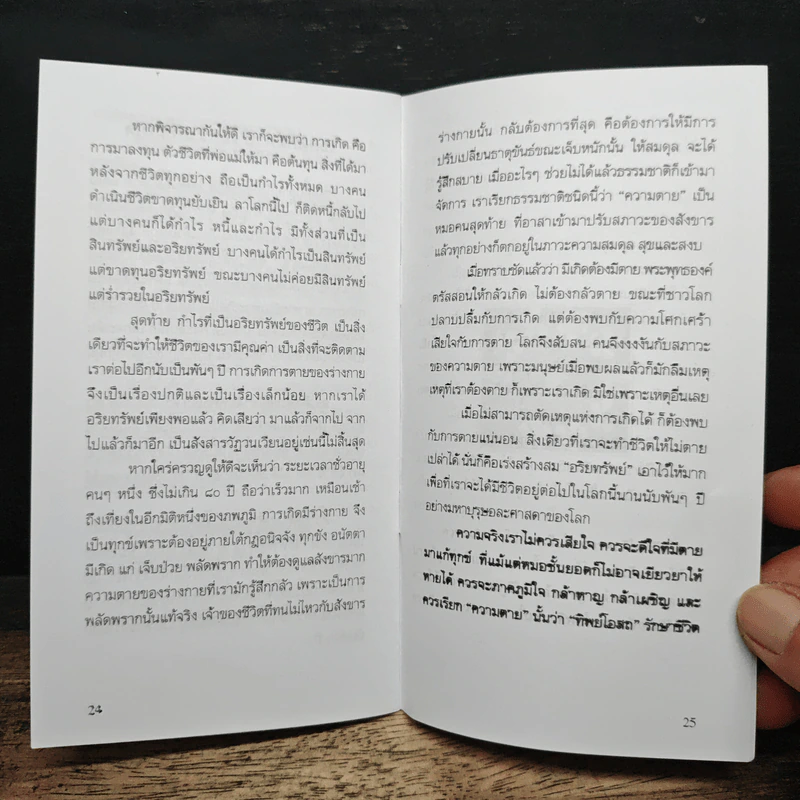 หากพิจารณากันให้ดี เราก็จะพบว่า การเกิด คือ
การมาลงทุน ตัวชีวิตที่พ่อแม่ให้มา คือต้นทุน สิ่งที่ได้มา
หลังจากชีวิตทุกอย่าง ถือเป็นกำไรทั้งหมด บางคน
ดำเนินชีวิตขาดทุนยับเยิน ลาโลกนี้ไป ก็ติดหนี้กลับไป
แต่บางคนก็ได้กำไร หนี้และกำไร มีทั้งส่วนที่เป็น
สินทรัพย์และอริยทรัพย์ บางคนได้กำไรเป็นสินทรัพย์
แต่ขาดทุนอริยทรัพย์ ขณะบางคนไม่ค่อยมีสินทรัพย์
แต่ร่ำรวยในอริยทรัพย์
สุดท้าย กำไรที่เป็นอริยทรัพย์ของชีวิต เป็นสิ่ง
เดียวที่จะทำให้ชีวิตของเรามีคุณค่า เป็นสิ่งที่จะติดตาม
เราต่อไปอีกนับเป็นพันๆ ปี การเกิดการตายของร่างกาย
จึงเป็นเรื่องปกติและเป็นเรื่องเล็กน้อย หากเราได้
อริยทรัพย์เพียงพอแล้ว คิดเสียว่า มาแล้วก็จากไป จาก
ไปแล้วก็มาอีก เป็นสังสารวัฏวนเวียนอยู่เช่นนี้ไม่สิ้นสุด
หากใคร่ครวญดูให้ดีจะเห็นว่า ระยะเวลาชั่วอายุ
คนๆ หนึ่ง ซึ่งไม่เกิน ๘๐ ปี ถือว่าเร็วมาก เหมือนเช้า
ถึงเที่ยงในอีกมิติหนึ่งของภพภูมิ การเกิดมีร่างกาย จึง
เป็นทุกข์เพราะต้องอยู่ภายใต้กฎอนิจจัง ทุกขัง อนัตตา
มีเกิด แก่ เจ็บป่วย พลัดพราก ทำให้ต้องดูแลสังขารมาก
ความตายของร่างกายที่เรามักรู้สึกกลัว เพราะเป็นการ
พลัดพรากนั้นแท้จริง เจ้าของชีวิตที่ทนไม่ไหวกับสังขาร
24
ร่างกายนั้น กลับต้องการที่สุด คือต้องการให้มีการ
ปรับเปลี่ยนธาตุขันธ์ขณะเจ็บหนักนั้น ให้สมดุล จะได้
รู้สึกสบาย เมื่ออะไรๆ ช่วยไม่ได้แล้วธรรมชาติก็เข้ามา
จัดการ เราเรียกธรรมชาติชนิดนี้ว่า “ความตาย” เป็น
หมอคนสุดท้าย ที่อาสาเข้ามาปรับสภาวะของสังขาร
แล้วทุกอย่างก็ตกอยู่ในภาวะความสมดุล สุขและสงบ
เมื่อทราบชัดแล้วว่า มีเกิดต้องมีตาย พระพุทธองค์
ตรัสสอนให้กลัวเกิด ไม่ต้องกลัวตาย ขณะที่ชาวโลก
ปลาบปลื้มกับการเกิด แต่ต้องพบกับความโศกเศร้า
เสียใจกับการตาย โลกจึงสับสน คนจึงงงงันกับสภาวะ
ของความตาย เพราะมนุษย์เมื่อพบผลแล้วก็มักลืมเหตุ
เหตุที่เราต้องตาย ก็เพราะเราเกิด มิใช่เพราะเหตุอื่นเลย
เมื่อไม่สามารถตัดเหตุแห่งการเกิดได้ ก็ต้องพบ
กับการตายแน่นอน สิ่งเดียวที่เราจะทำชีวิตให้ไม่ตาย
เปล่าได้ นั่นก็คือเร่งสร้างสม “อริยทรัพย์” เอาไว้ให้มาก
เพื่อที่เราจะได้มีชีวิตอยู่ต่อไปในโลกนี้นานนับพันๆ ปี
อย่างมหาบุรุษอละศาสดาของโลก
ความจริงเราไม่ควรเสียใจ ควรจะดีใจที่มีตาย
มาแก้ทุกข์ ที่แม้แต่หมอชั้นยอดก็ไม่อาจเยียวยาให้
หายได้ ควรจะภาคภูมิใจ กล้าหาญ กล้าเผชิญ และ
ควรเรียก “ความตาย” นั้นว่า “ทิพย์โอสถ” รักษาชีวิต
25